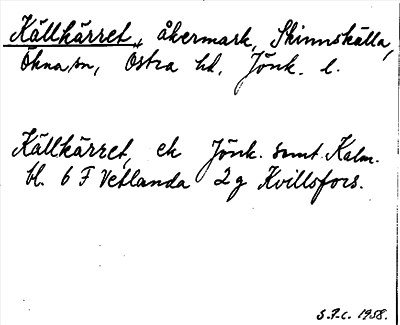 Källkärret, åkermark, Skinnskälla,
Ökna sn, Östra hd, Jönk. l.
Källkärret, ek Jönk. samt Kalm.
bl. 6 F Vetlanda 2 g Kvillsfors.
S.F.C. 1958.